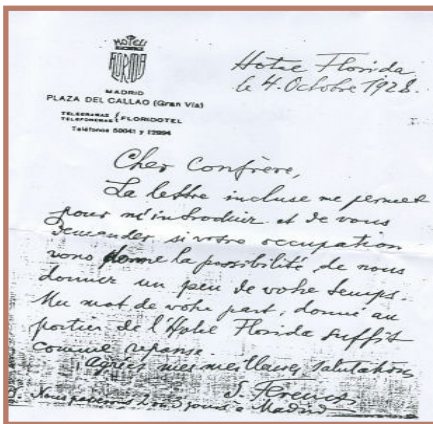 HOTEL
FLORIDA
MADRID
PLAZA DEL CALLAO (Gran Vía)
TELEGRAMAS
TELEFONEMAS { FLORIDOTEL
Teléfonos 59041 y 12994
Hotel Florida
le 4. Octobre 1928.
Cher Confrère,
La lettre incluse me permet
pour m'introduire et de vous
demander si votre occupation
vous donne la possibilité de nous
donner un peu de votre temps.
Un mot de votre part, donné au
portier de l'Hotel Florida suffit
comme réponse.
Agréez mes meilleures salutations
S.
Nous passerons 2 ou 3 jours à Madrid